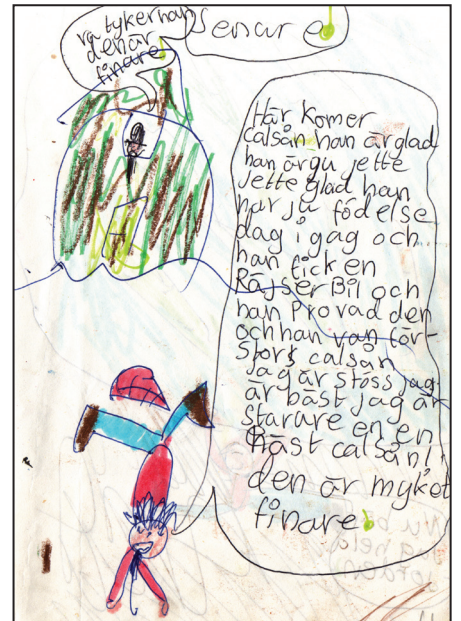 va tyker han
den är
finare!
Senare!
Här Komer
calsån han är glad
han ärgu jette
jette glad han
har ju födelse
dag i gåg och
han fick en
Räjser Bil och
han Provad den
och han van för-
Stors calsån
Jag är stöss jag
är bäst jag är
starare en en
Häst calsån!
den är myket
finare!